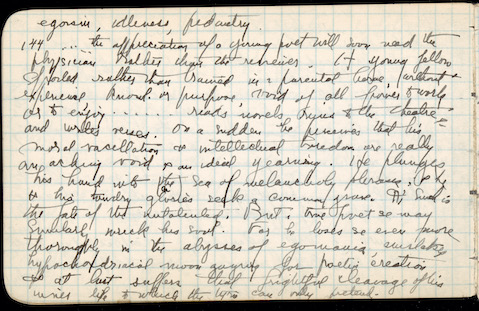 egoism, idleness pedantry.
144 ... the appreciation of a young poet will soon need the
physician rather than the reviewer. A young fellow
spoiled rather than trained in a parental home, without
experience, knowl. or purpose, void of all power to work
or to enjoy ...... reads novels, runs to the theatre
and writes verses. On a sudden he perceives that this
moral vacillation & intellectual boredom are really
an aching void & an ideal yearning. He plunges
his hand into the sea of melancholy phrases, &
his tawdry glories seek a common grave. Such is
the fate of the untalented. But one poet so may
similarly wreck his soul. For he loses so even more
thoroughly in the abysses of egomania,
hypochondriacal moon gazing for poetic creation
& at last suffers that frightful cleavage of his
inner life to which the can only pretend.